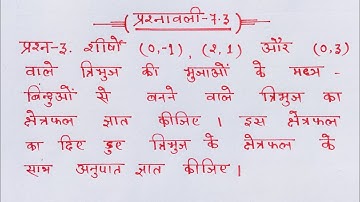 प्रश्नावली-7.3
प्रश्न-3. शीर्षों (0,-1), (2, 1) और (0,3)
वाले त्रिभुज की भुजाओं के मध्य-
बिन्दुओं से बनने वाले त्रिभुज का
क्षेत्रफल ज्ञात कीजिए । इस क्षेत्रफल
का दिए हुए त्रिभुज के क्षेत्रफल के
साथ अनुपात ज्ञात कीजिए ।